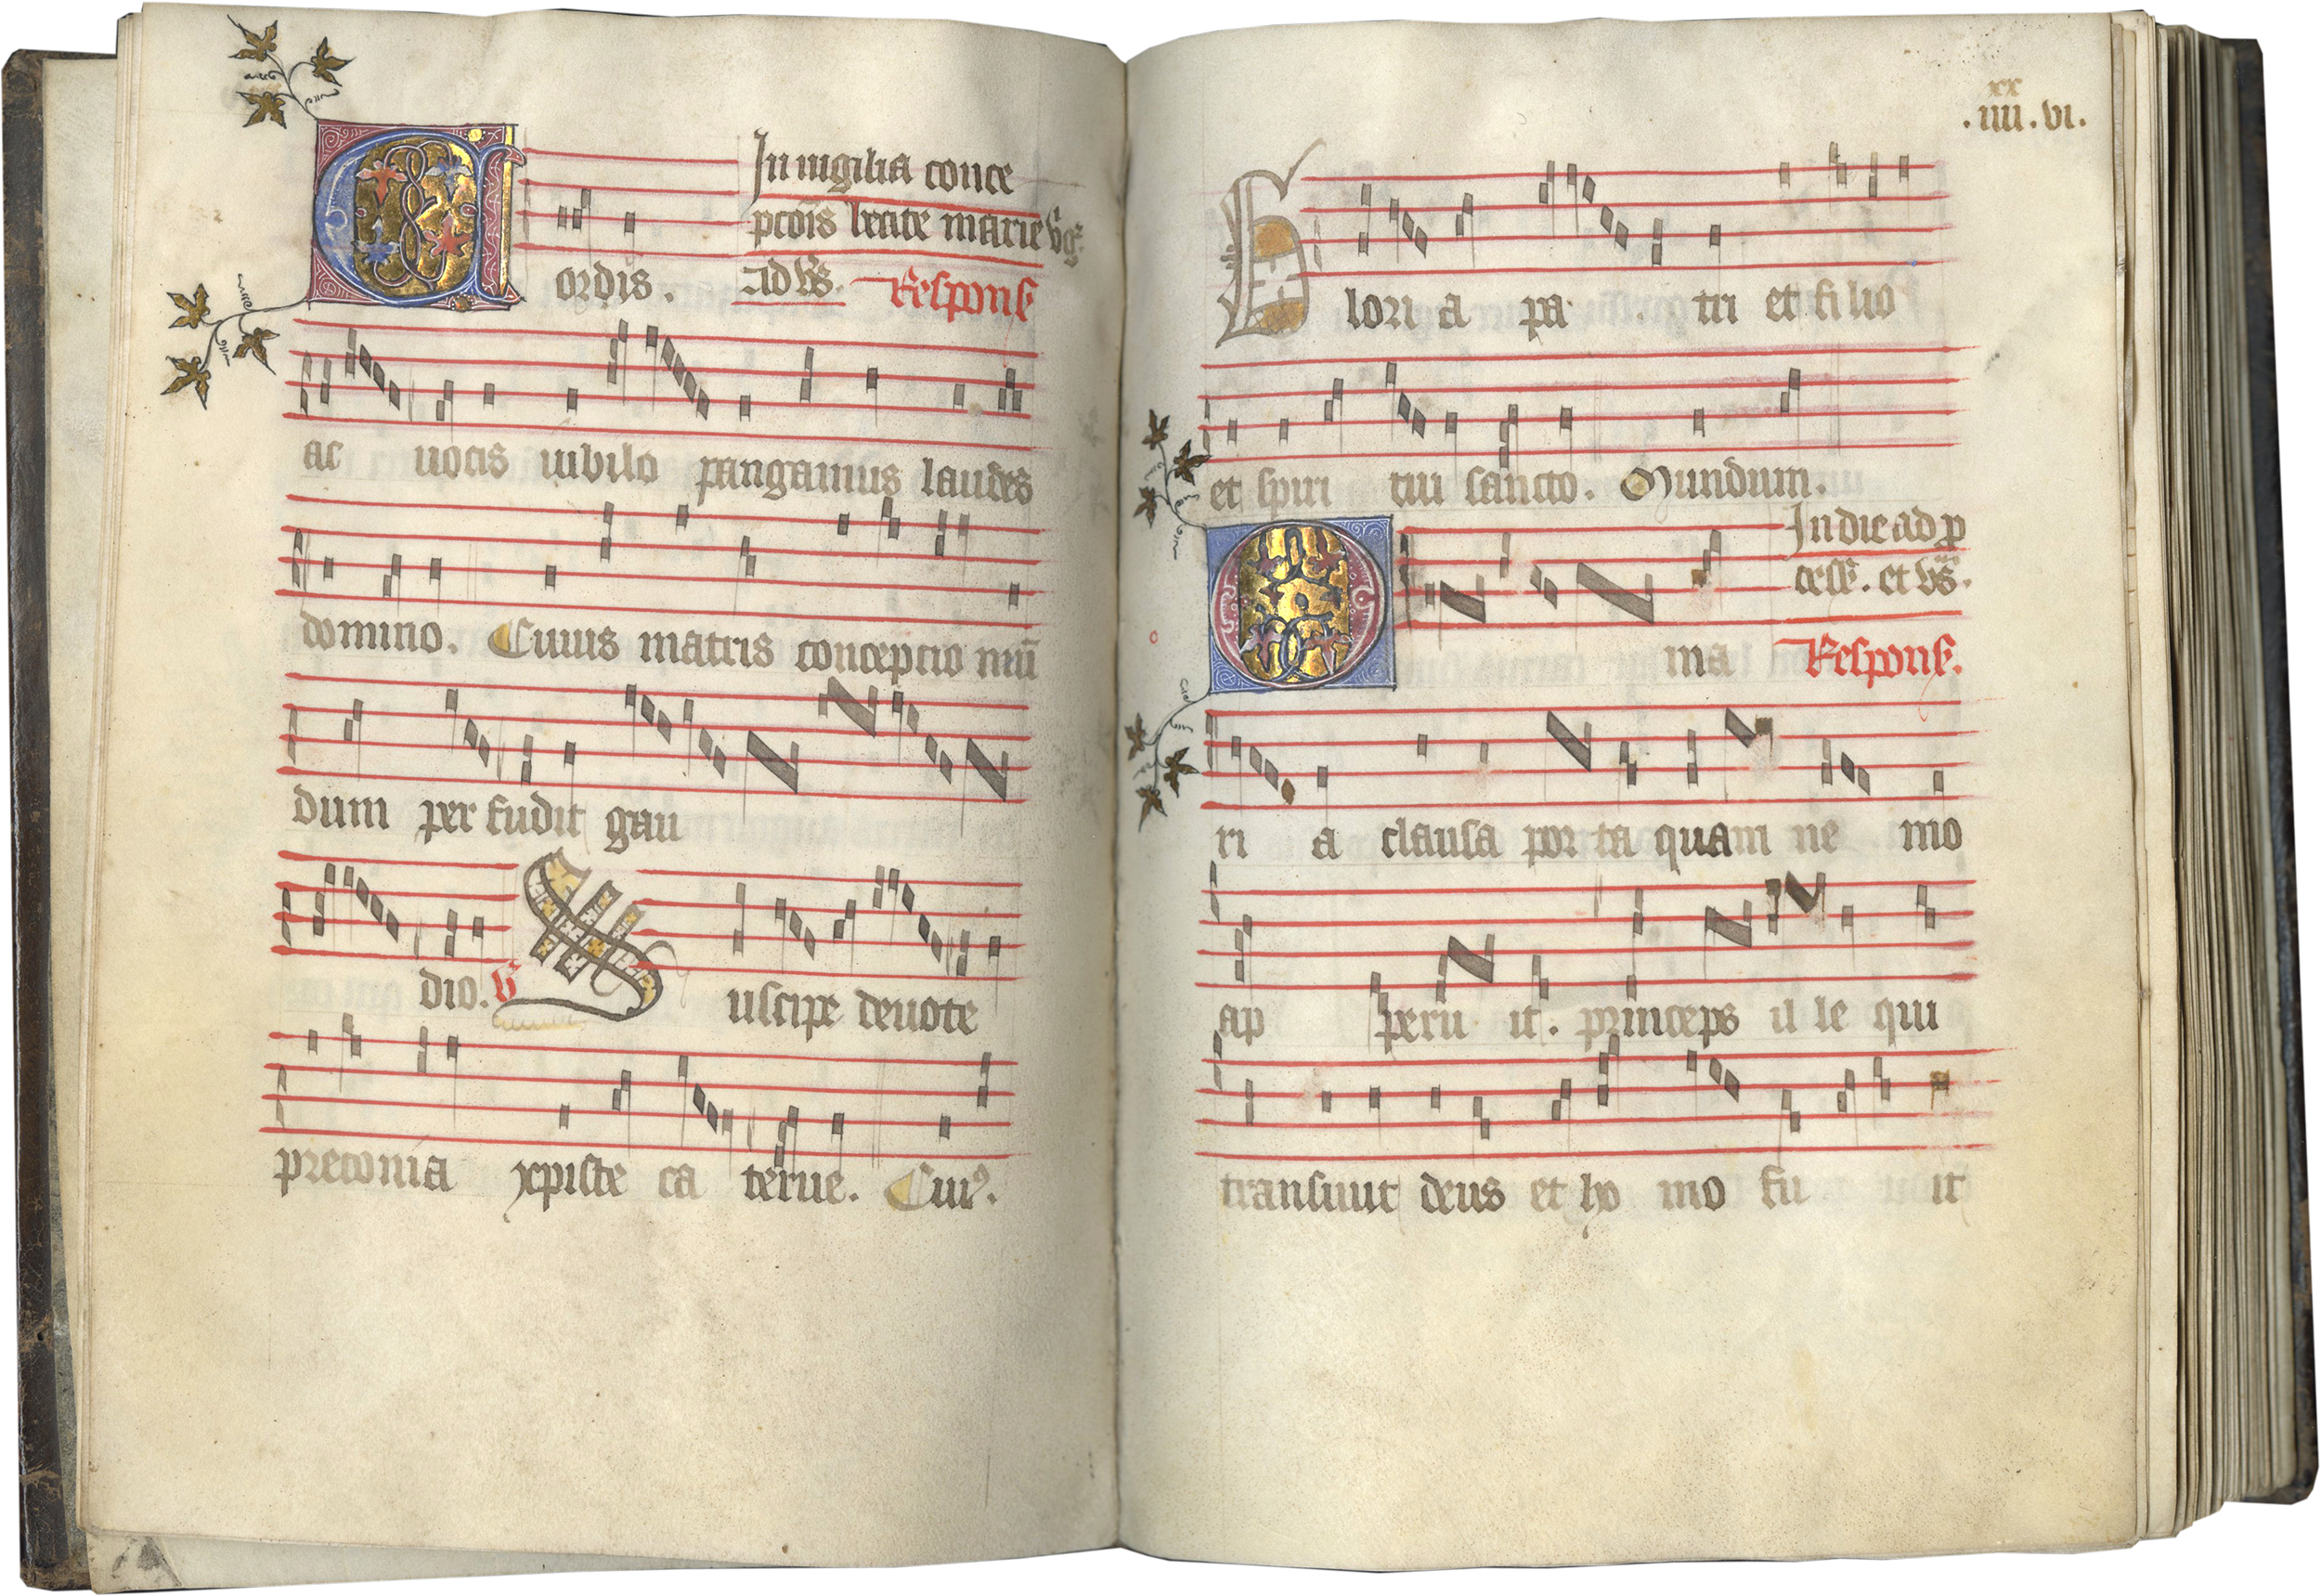 In uigilia conce
pcōis beate marie v̄gͥ.
Cordis. ad vs̄. Respons̄
ac uocis iubilo pangamus laudes
domino. Cuius matris conceptio mū
dum per fudit gau
dio. ℣ Suscipe deuote
preconia xpiste ca terue. Cuiꝰ.
xx
.iiii.vi.
Glori a pa tri et fi lio
et spiri tui sancto. Mundum.
In die ad p
cess̄. et vs̄.
O ma Respons̄.
ri a clausa por ta quam ne mo
ap peru it. princeps il le qui
transiuit deus et ho mo fu it